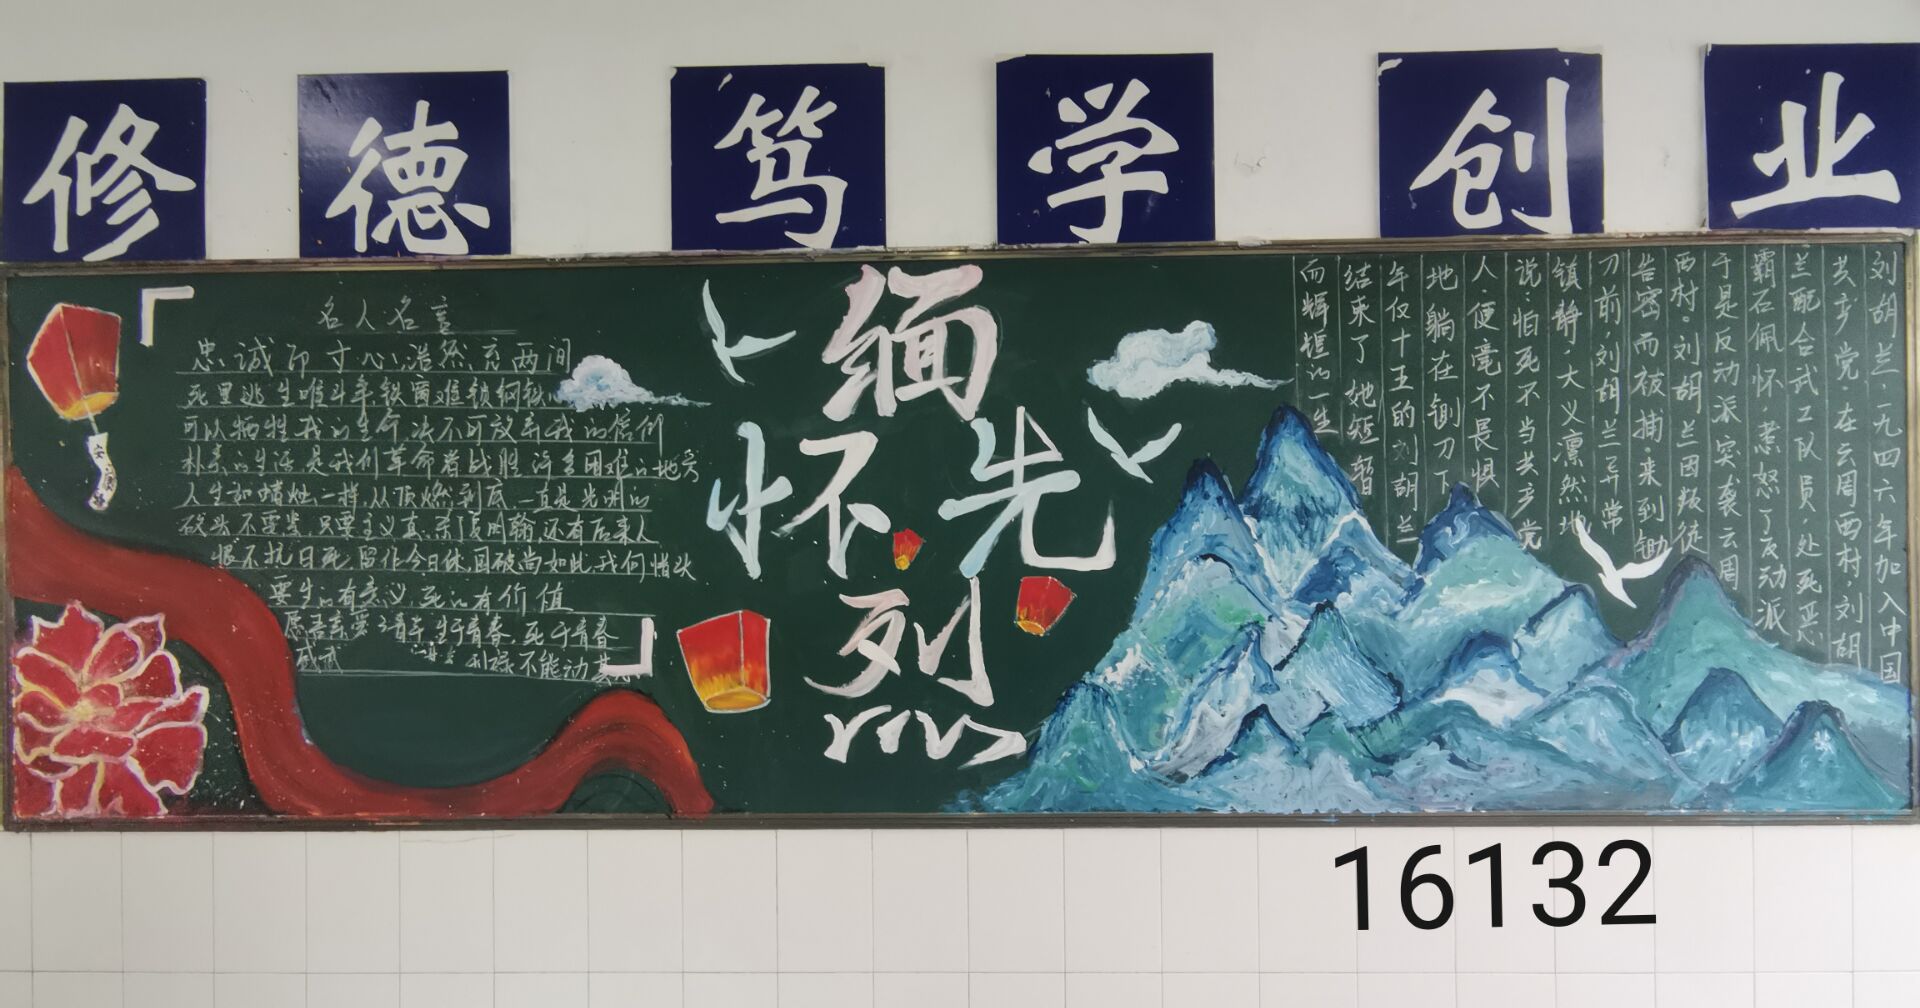 修德笃学创业
名人名言
忠诚印寸心,浩然充两间
死里逃生唯斗争,铁窗难锁钢铁心
可以牺牲我的生命,决不可放弃我的信仰
朴素的生活是我们革命者战胜许多困难的地方
人生和蜡烛一样,从顶燃到底,一直是光明的
砍头不要紧,只要主义真,杀了夏明翰,还有后来人
恨不抗日死,留作今日休,国破尚如此,我何惜头
要生的有意义,死的有价值
愿吾亲爱之青年,生于青春,死于青春
利禄不能动其
缅
怀先
烈
刘胡兰,一九四六年加入中国
共产党,在云周西村,刘胡
兰配合武工队员,处死恶
霸石佩怀,惹怒了反动派
于是反动派突袭云周
西村,刘胡兰因叛徒
告密而被捕,来到铡
刀前,刘胡兰异常
镇静,大义凛然地
说:怕死不当共产党
人,便毫不畏惧
地躺在铡刀下
年仅十五的刘胡兰
结束了她短暂
而辉煌的一生
16132